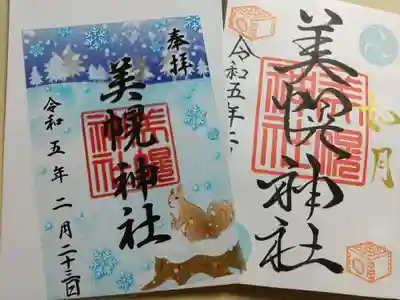 奉拝
美幌神社
令和五年二月二十三日
美幌神社
如月
令和五年二